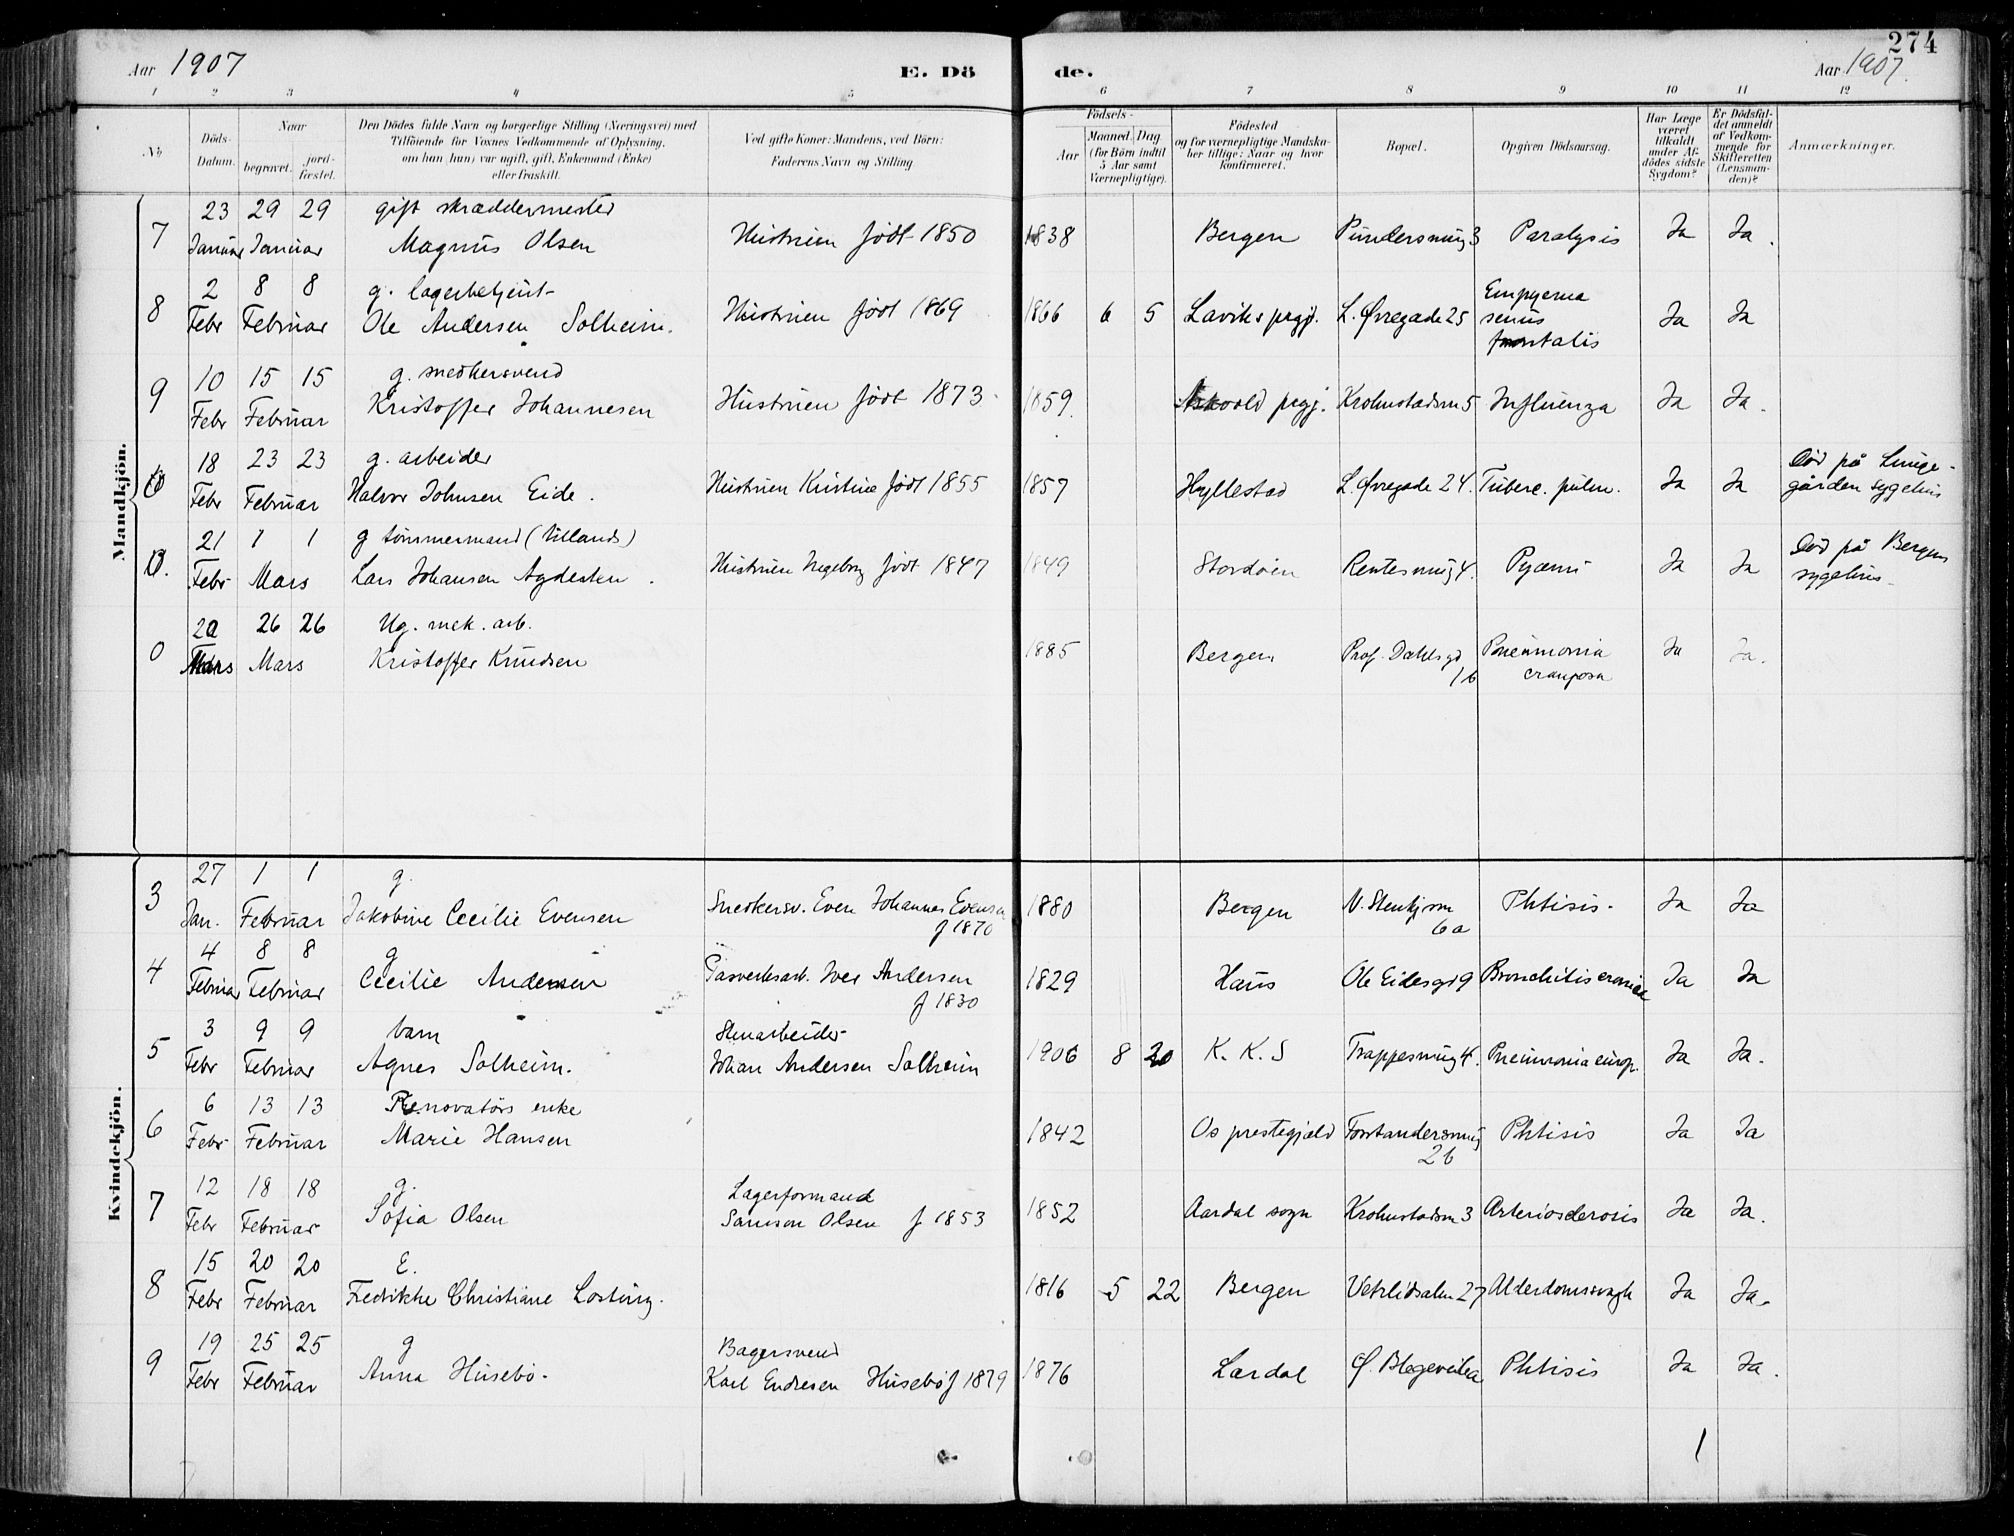 274
Aar 1907 E. Dö de. Aar 1907.
1 2 3 4 5 6 7 8 9 10 11 12
No
Döds-Datum.
Naar
begravet. jordfæstet.
Den Dödes fulde Navn og borgerlige Stilling (Næringsvei) med
Tilföiende for Voxnes Vedkommende af Oplysning,
om han (hun) var ugift, gift, Enkemand (Enke)
eller fraskilt.
Ved gifte Koner: Mandens, ved Börn:
Faderens Navn og Stilling
Födsels-
Aar Maaned. Dag.
(for Börn indtil
5 Aar samt
Værnepligtige).
Födested
og for værnepligtige Mandsko-
ner tillige: Naar og hvor
konfirmeret.
Bopæl.
Opgiven Dödsaarsag.
Har Læge
været
tilkaldt
under Af-
dödes sidste
Sygdom?
Er Dödsfal-
det anmeldt
af Vedkom-
mende for
Skifteretten
(Lensman-
den)?
Anmærkninger.
Mandkjön.
23 29 29 gift skræddermester
7 Januar Januar Magnus Olsen Hustruen født 1850 1838 Bergen Pundersmug 3 Paralysis Ja Ja.
2 8 8 g. lagerbetjent Empyema
8 Febr Februar Ole Andersen Solheim. Hustruen født 1869 1866 6 5 Laviks prgj. L. Øvregade 25 senus Ja Ja
frontalis
10 15 15 g. snedkersvend
9 Febr Februar Kristoffer Johannesen Hustruen født 1873. 1859. Askvold prgj. Krohnstadsm 5 Influenza Ja Ja.
18 23 23 g. arbeider Død på Lunge-
Febr Februar Halvor Johnsen Eide. Hustruen Kristine født 1855 1857 Hyllestad L. Øvregade 24. Tuberc. pulm. Ja Ja gården sygehus
21 1 1 g tømmermand Død på Bergens
Febr. Mars Lars Johansen Agdesten. Hustruen Ingeborg født 1847 1849 Stordøen Rentesmug 4. Pyæmi Ja Ja sygehus
20 26 26 Ug. mek. arb.
0 Mars Mars Kristoffer Knudsen 1885 Bergen Prof. Dahlsgd Pneumonia Ja Ja.
16 crouposa
Kvindekjön.
27 1 1 g.
3 Jan. Februar Jakobine Cecilie Evensen Snedkersv. Even Johannes Evensen 1880 Bergen N. Stenkjsm Phtisis. Ja Ja
f 1870 6 a
4 8 8 g
4 Februar Februar Cecilie Andersen Gasverksarb. Iver Andersen 1829 Haus Ole Eidesgd 9 Bronchitis cronica Ja Ja
f 1830
3 9 9 barn Stenarbeider
5 Febr Februar Agnes Solheim. Johan Andersen Solheim 1906 8 20 K. K. S Trappesmug 4. Pneumonia croup. Ja Ja.
6 13 13 Renovatørs enke
6 Febr Februar Marie Hansen 1842 Os prestegjæld Forstandersmug Phtisis Ja Ja
26
12 18 18 g. Lagerformand
7 Febr Februar Sofia Olsen Samson Olsen f 1853 1852 Aardal sogn Krohnstadsm 3 Arteriosclerosis Ja Ja.
15 20 20 E.
8 Febr Februar Fredrikke Christiane Losting. 1816 5 22 Bergen Vetrlidsalm 27 Alderdomssvagh Ja Ja.
19 25 25 g Bagersvend
9 Febr Februar Anna Husebø. Karl Endresen Husebø f 1879 1876 Lærdal Ø. Blegeveien Phtisis Ja Ja.